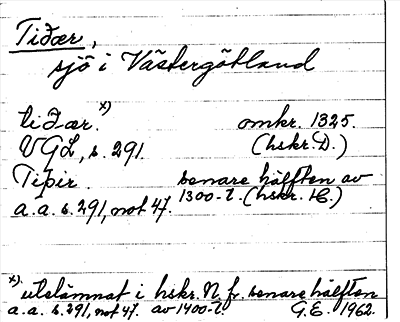 Tiðær,
sjö i Västergötland
tiðær. x) omkr. 1325.
VGL, s. 291. (hskr. D.)
Tipir. senare hälften av
a.a. s. 291, not 47. 1300-t. (hskr. H.)
x) utelämnat i hskr. N. fr. senare hälften
a.a. s. 291, not 47. av 1400-t. G.E. 1962.